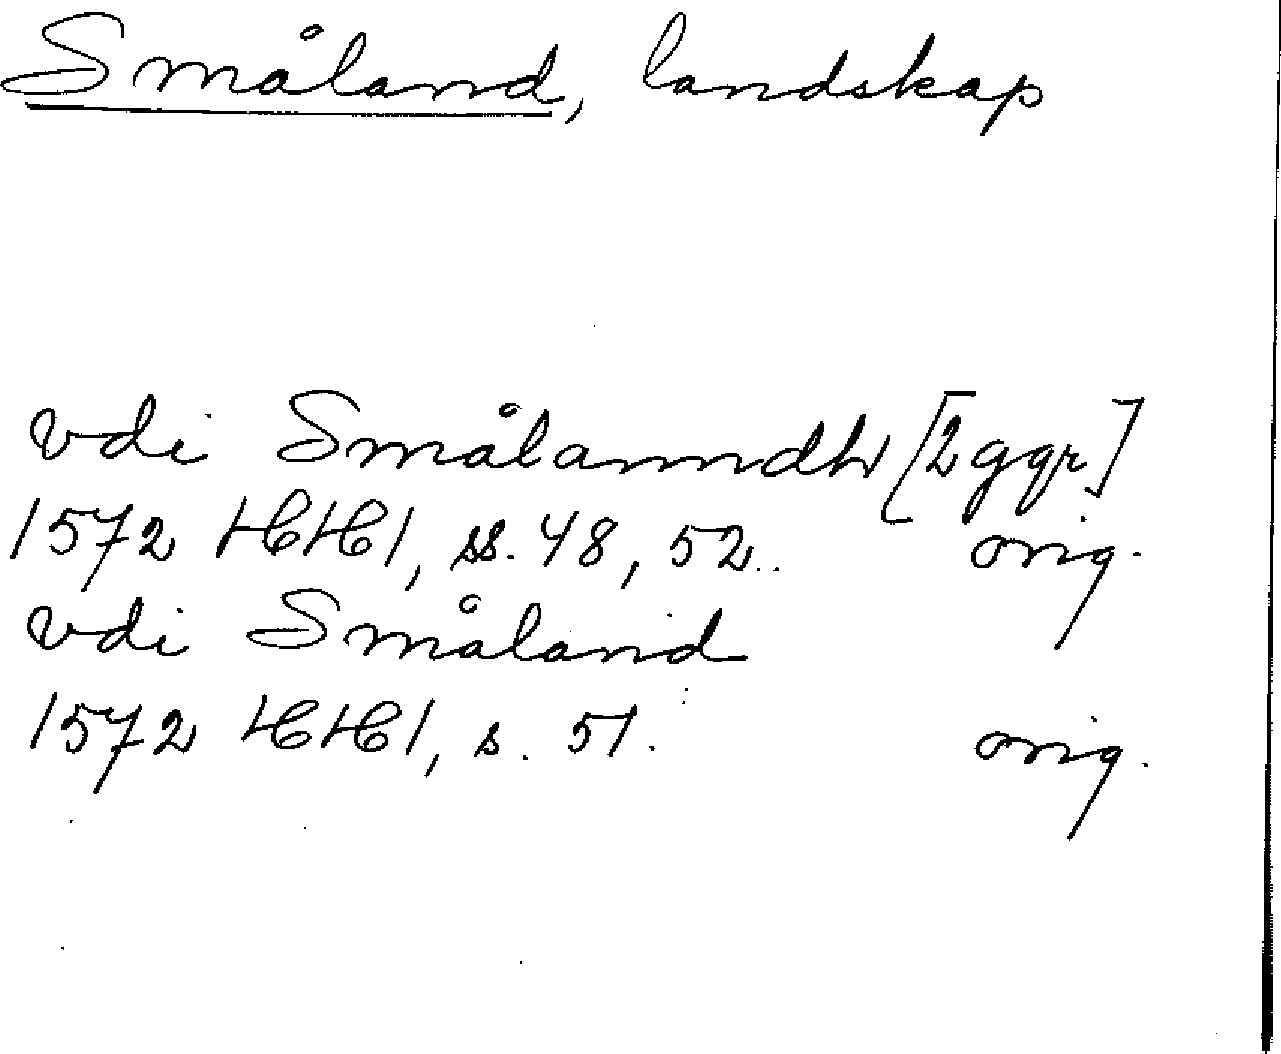 Småland, landskap
vdi Smålanndh [2 ggr]
1572 HH1, ss. 48, 52. orig.
vdi Småland
1572 HH1, s. 51. orig.